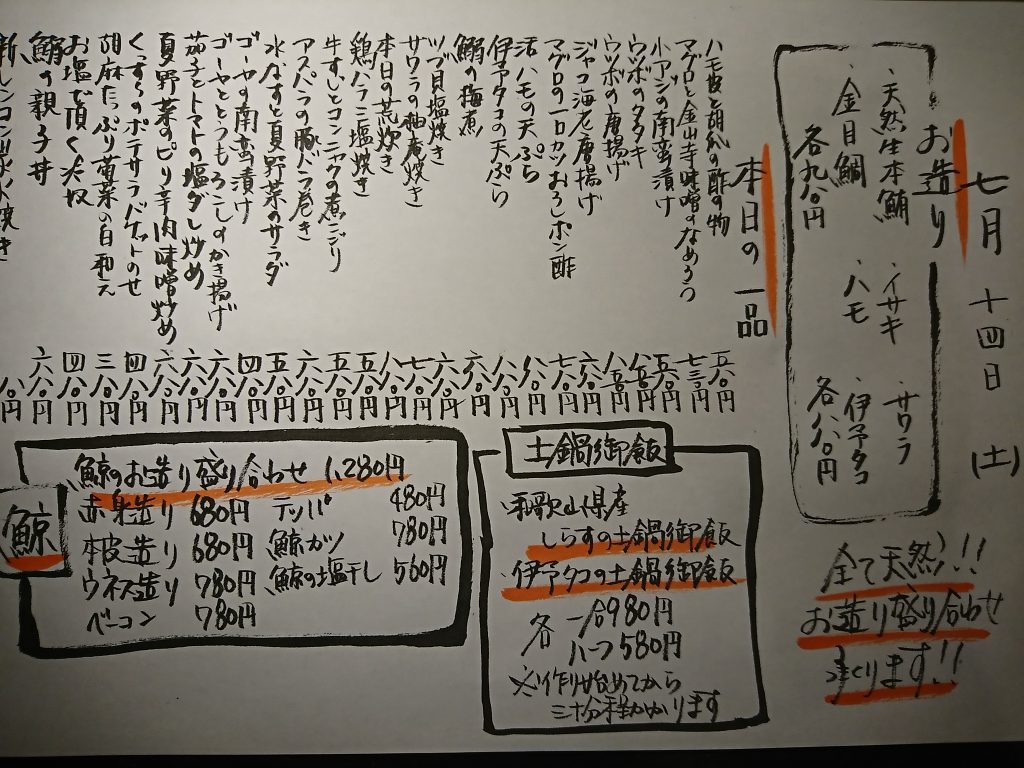 七月 十四日 (土)
お造り
・天然生本鮪 ・イサキ ・サワラ
・金目鯛 ・ハモ ・伊予タコ
各九八〇円 各八八〇円
全て天然!!
お造り盛り合わせ
つくります!!
本日の一品
ハモ皮と胡瓜の酢の物 五八〇円
マグロと金山寺味噌のなめろう 七三〇円
小アジの南蛮漬け 五八〇円
ウツボのタタキ 八八〇円
ウツボの唐揚げ 八八〇円
ジャコ海老唐揚げ 六八〇円
マグロの一口カツおろしポン酢 七八〇円
活ハモの天ぷら 八八〇円
伊予タコの天ぷら 八八〇円
鰯の梅煮 六八〇円
ツブ貝塩焼き 六八〇円
サワラの柚庵焼き 七八〇円
本日の荒炊き 八八〇円
鶏ハラミ塩焼き 五八〇円
牛すじとコンニャクの煮こごり 五八〇円
アスパラの豚バラ巻き 六八〇円
水なすと夏野菜のサラダ 五八〇円
ゴーヤの南蛮漬け 四八〇円
ゴーヤととうもろこしのかき揚げ 六八〇円
茄子とトマトの塩ダレ炒め 六八〇円
夏野菜のピリ辛肉味噌炒め 六八〇円
くっすらのポテサラバゲットのせ 四八〇円
胡麻たっぷり菊菜の白和え 三八〇円
お塩で頂く冷奴 四八〇円
鰯の親子丼 六八〇円
新レンコン
土鍋御飯
・和歌山県産
しらすの土鍋御飯
・伊予タコの土鍋御飯
各 一合980円
ハーフ580円
※作り始めてから
三十分程かかります
鯨
鯨のお造り盛り合わせ 1,280円
赤身造り 680円 テッパ 480円
本皮造り 680円 鯨カツ 780円
ウネス造り 780円 鯨の塩干し 560円
ベーコン 780円